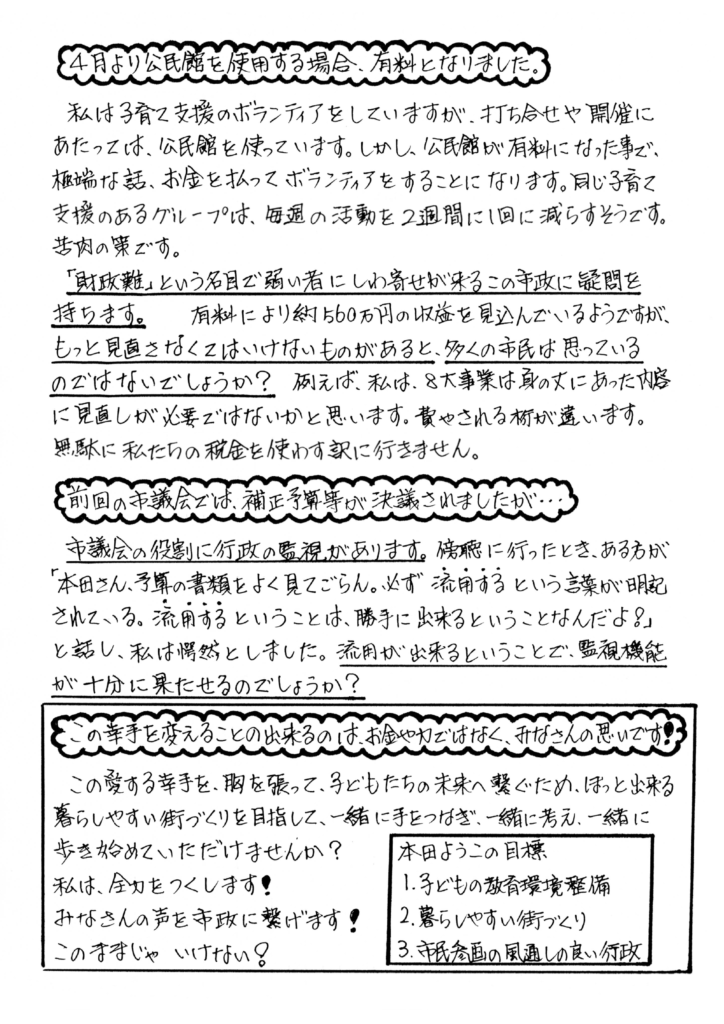 4月より公民館を使用する場合、有料となりました。
私は子育て支援のボランティアをしていますが、打ち合せや開催に
あたっては、公民館を使っています。しかし、公民館が有料になった事で、
極端な話、お金を払ってボランティアをすることになります。同じ子育て
支援のあるグループは、毎週の活動を2週間に1回に減らすそうです。
苦肉の策です。
「財政難」という名目で弱い者にしわ寄せが来るこの市政に疑問を
持ちます。 有料により約560万円の収益を見込んでいるようですが、
もっと見直さなくてはいけないものがあると、多くの市民は思っている
のではないでしょうか? 例えば、私は、8大事業は身の丈にあった内容
に見直しが必要ではないかと思います。費やされる桁が違います。
無駄に私たちの税金を使わす訳に行きません。
前回の市議会では、補正予算等が決議されましたが…
市議会の役割に行政の監視があります。傍聴に行ったとき、ある方が
「本田さん、予算の書類をよく見てごらん。必ず流用するという言葉が明記
されている。流用するということは、勝手に出来るということなんだよ?」
と話し、私は愕然としました。流用が出来るということで、監視機能
が十分に果たせるのでしょうか?
この幸手を変えることの出来るのは、お金や力ではなく、みなさんの思いです!
この愛する幸手を、胸を張って、子どもたちの未来へ繋ぐため、ほっと出来る
暮らしやすい街づくりを目指して、一緒に手をつなぎ、一緒に考え、一緒に
歩き始めていただけませんか?
私は、全力をつくします!
みなさんの声を市政に繋げます!
このままじゃ いけない?
本田ようこの目標
1.子どもの教育環境整備
2.暮らしやすい街づくり
3.市民参画の風通しの良い行政